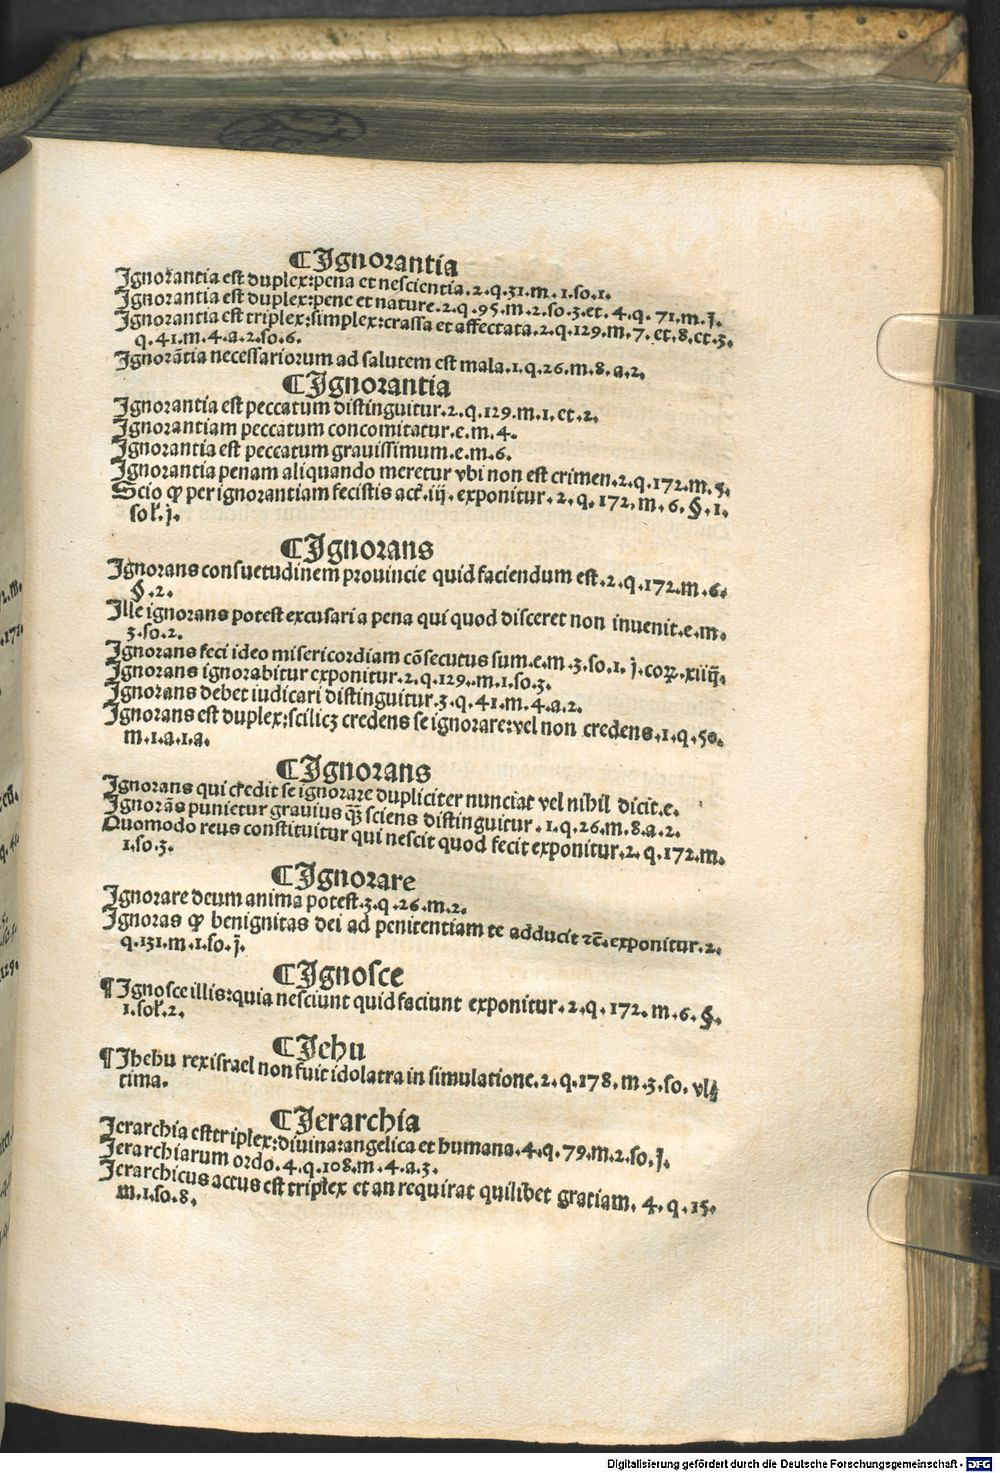 ¶Ignorantia
Ignorantia est duplex:pena et nescientia.2.q.31.m.1.so.1.
Ignorantia est duplex:pene et nature.2.q.95.m.2.so.3.et.4.q.71.m.j.
Ignorantia est triplex:simplex:crassa et affectata.2.q.129.m.7.et.8.et.3.
q.41.m.4.a.2.so.6.
Ignorãtia necessariorum ad salutem est mala.1.q.26.m.8.a.2.
¶Ignorantia
Ignorantia est peccatum distinguitur.2.q.129.m.1.et.2.
Ignorantiam peccatum concomitatur.e.m.4.
Ignorantia est peccatum grauissimum.e.m.6.
Ignorantia penam aliquando meretur vbi non est crimen.2.q.172.m.5.
Scio ꝙ per ignorantiam fecistis act̃.iij.exponitur.2.q.172.m.6.§.1.
sol̃.j.
¶Ignorans
Ignorans consuetudinem prouincie quid faciendum est.2.q.172.m.6.
§.2.
Ille ignorans potest excusari a pena qui quod disceret non inuenit.e.m.
3.so.2.
Ignorans feci ideo misericordiam cõsecutus sum.e.m.3.so.1.j.coꝝ.xiiij̃.
Ignorans ignorabitur exponitur.2.q.129.m.1.so.3.
Ignorans debet iudicari distinguitur.3.q.41.m.4.a.2.
Ignorans est duplex:scilicꝫ credens se ignorare:vel non credens.1.q.50.
m.1.a.1.a.
¶Ignorans
Ignorans qui credit se ignorare dupliciter nunciat vel nihil dicit.e.
Ignorãs punietur grauius q̃ꝫ sciens distinguitur.1.q.26.m.8.a.2.
Quomodo reus constituitur qui nescit quod fecit exponitur.2.q.172.m.
1.so.3.
¶Ignorare
Ignorare deum anima potest.3.q.26.m.2.
Ignoras ꝙ benignitas dei ad penitentiam te adducit ⁊c̃.exponitur.2.
q.131.m.1.so.j.
¶Ignosce
¶Ignosce illis:quia nesciunt quid faciunt exponitur.2.q.172.m.6.§.
1.sol̃.2.
¶Iehu
¶Ihehu rex israel non fuit idolatra in simulatione.2.q.178.m.3.so.vl⸗
tima.
¶Ierarchia
Ierarchia est triplex:diuina:angelica et humana.4.q.79.m.2.so.j.
Ierarchiarum ordo.4.q.108.m.4.a.3.
Ierarchicus actus est triplex et an requirat quilibet gratiam.4.q.15.
m.1.so.8.
Digitalisierung gefördert durch die Deutsche Forschungsgemeinschaft - DFG